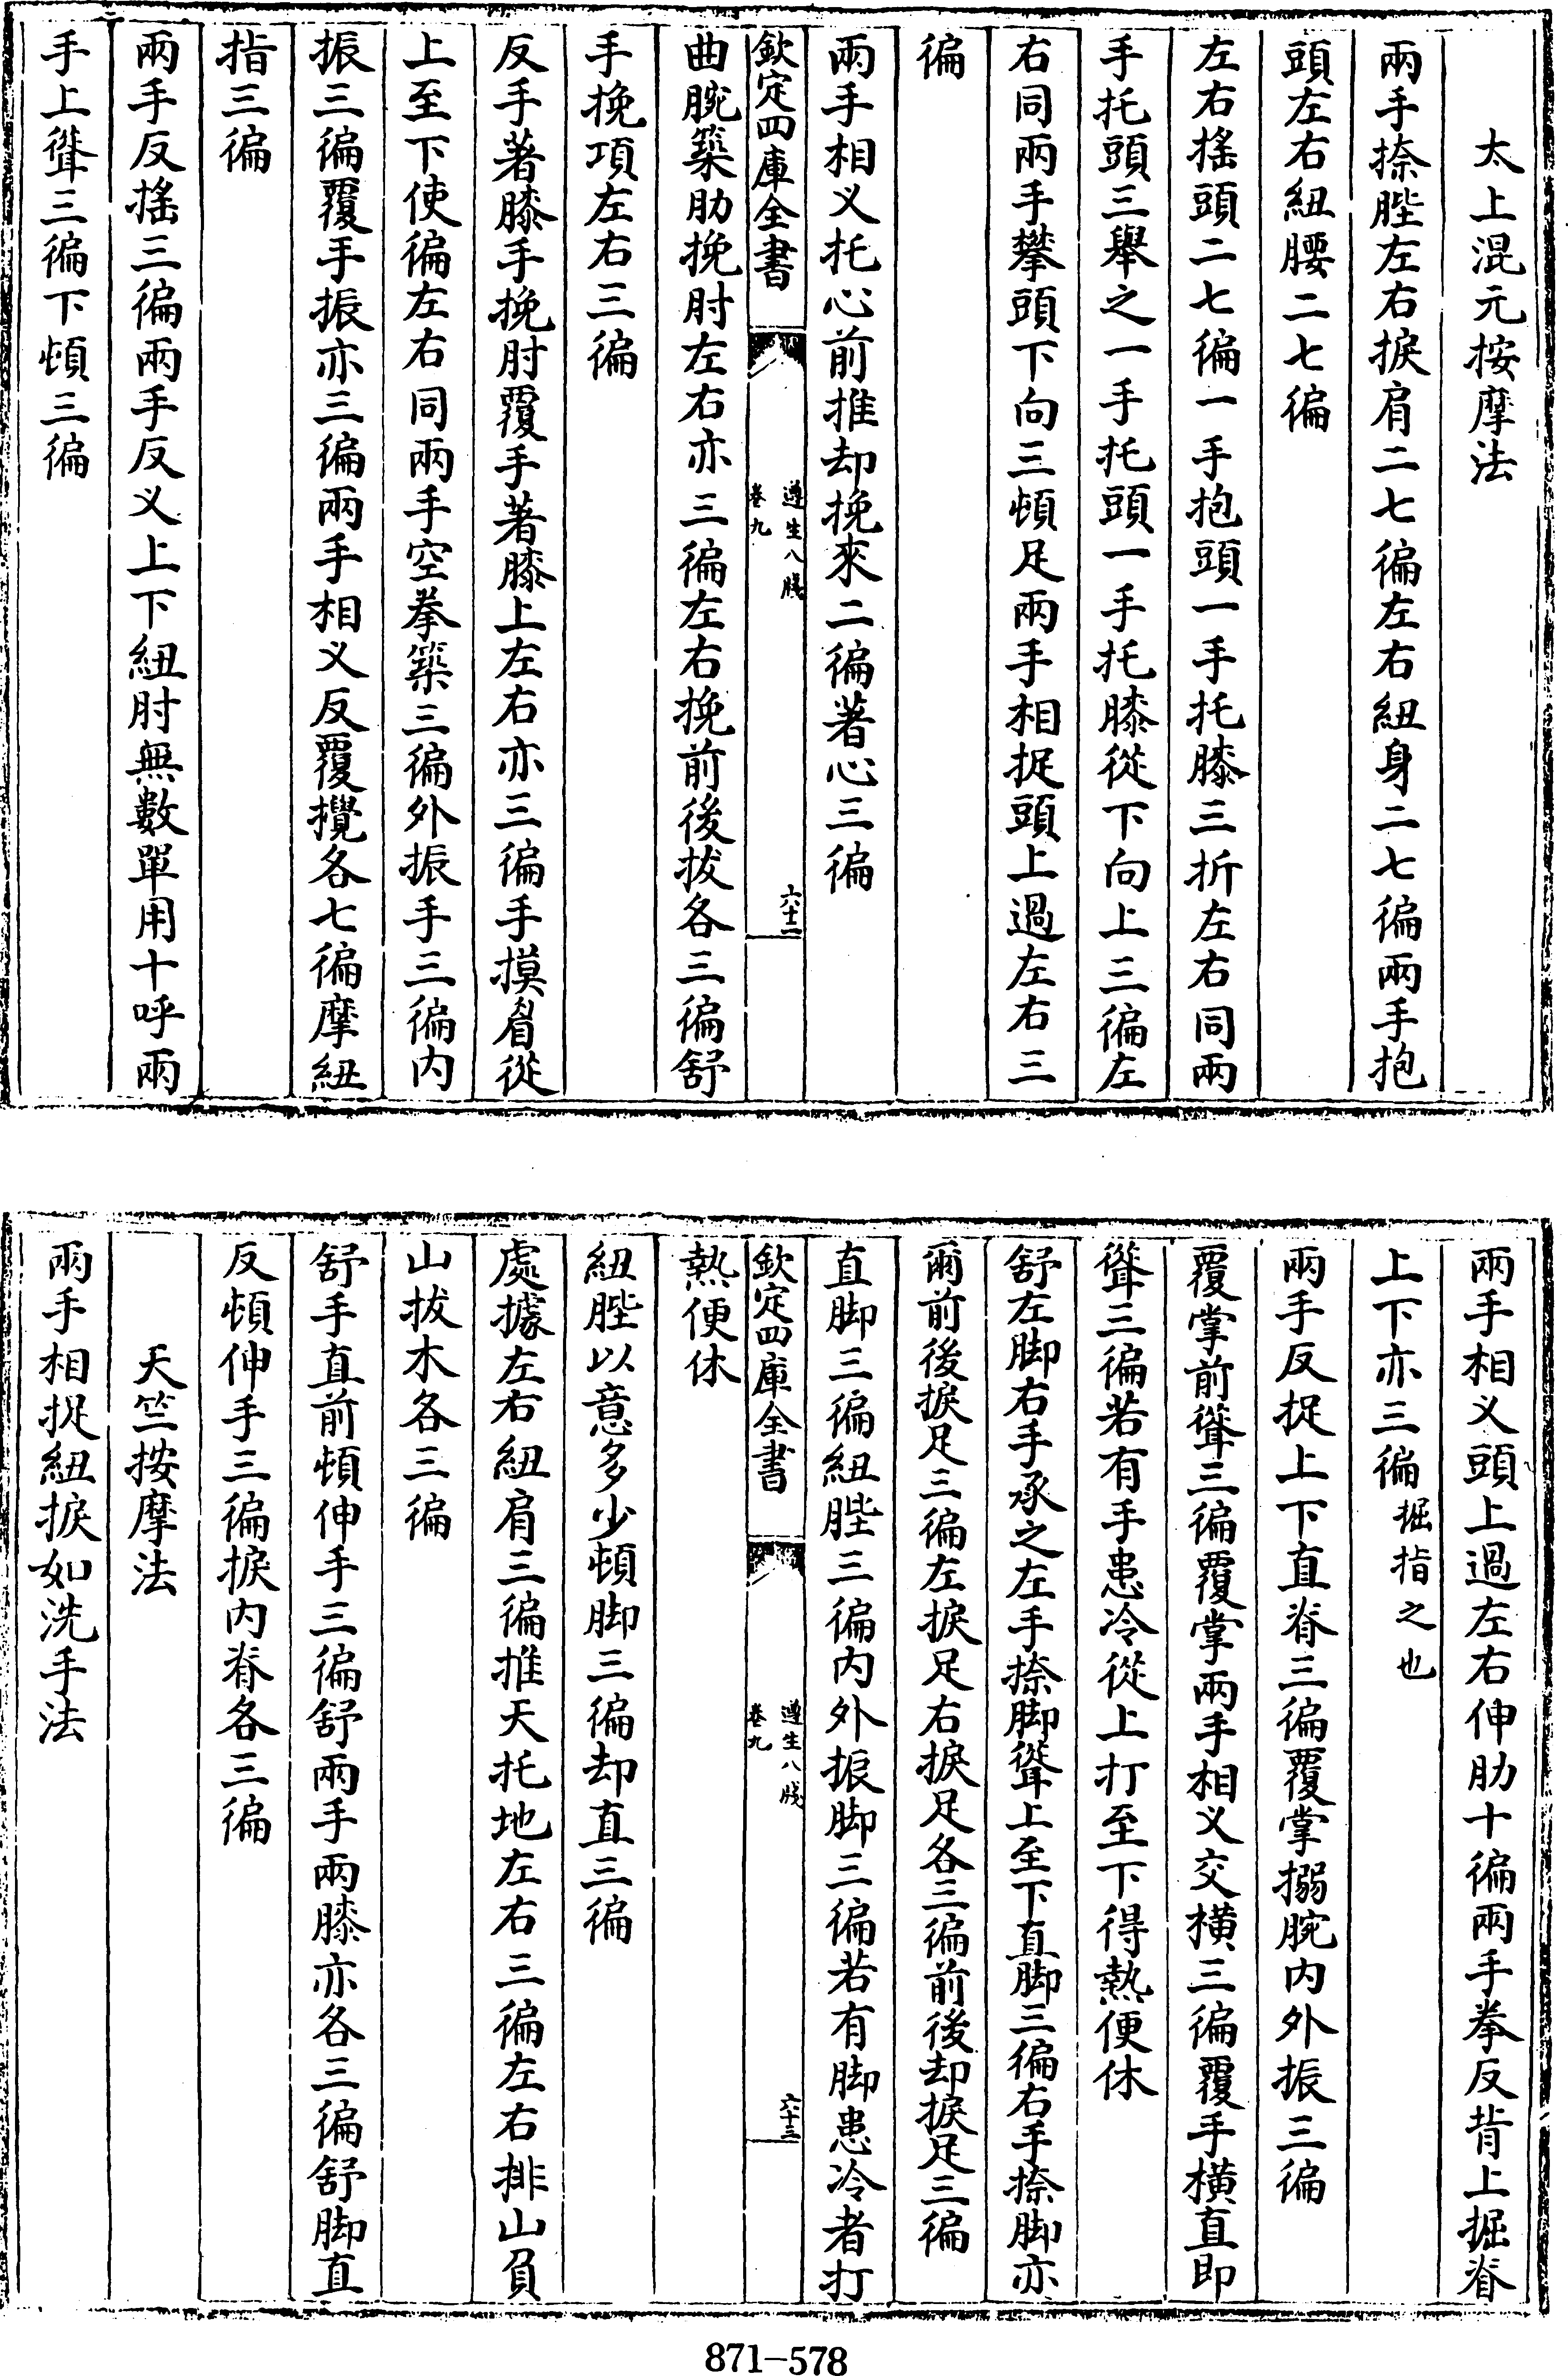 太上混元按摩法
兩手捺䏶左右捩肩二七徧左右紐身二七徧兩手抱
頭左右紐腰二七徧
左右搖頭二七徧一手抱頭一手托膝三折左右同兩
手托頭三舉之一手托頭一手托膝從下向上三徧左
右同兩手攀頭下向三頓足兩手相捉頭上過左右三
徧
兩手相义托心前推却挽來二徧著心三徧
欽定四庫全書
遵生八牋
卷九
六十二
曲腕築肋挽肘左右亦三徧左右挽前後拔各三徧舒
手挽項左右三徧
反手著膝手挽肘覆手著膝上左右亦三徧手摸肩從
上至下使徧左右同兩手空拳築三徧外振手三徧内
振三徧覆手振亦三徧兩手相义反覆攪各七徧摩紐
指三徧
兩手反搖三徧兩手反义上下紐肘無數單用十呼兩
手上聳三徧下頓三徧
兩手相义頭上過左右伸肋十徧兩手拳反背上掘脊
上下亦三徧掘指之也
兩手反捉上下直脊三徧覆掌搦腕内外振三徧
覆掌前聳三徧覆掌兩手相义交横三徧覆手横直即
聳三徧若有手患冷從上打至下得熱便休
舒左脚右手承之左手捺脚聳上至下直脚三徧右手捺脚亦
爾前後捩足三徧左捩足右捩足各三徧前後却捩足三徧
直脚三徧紐䏶三徧内外振脚三徧若有脚患冷者打
欽定四庫全書
遵生八牋
卷九
六十三
熱便休
紐䏶以意多少頓脚三徧却直三徧
處據左右紐肩三徧推天托地左右三徧左右排山負
山拔木各三徧
舒手直前頓伸手三徧舒兩手兩膝亦各三徧舒脚直
反頓伸手三徧捩内脊各三徧
天竺按摩法
兩手相捉紐捩如洗手法
871-578